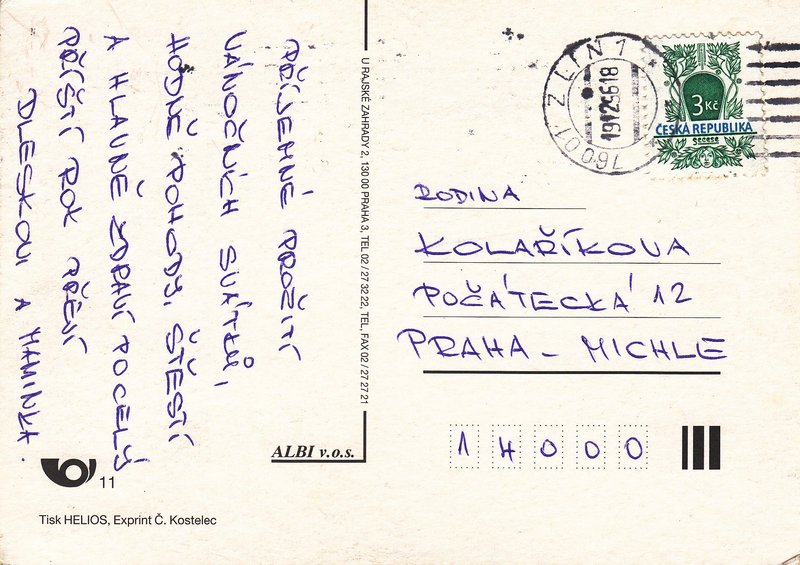 PŘÍJEMNÉ PROŽITÍ
VÁNOČNÍCH SVÁTKŮ,
HODNĚ POHODY, ŠTĚSTÍ
A HLAVNĚ ZDRAVÍ PO CELÝ
PŘÍŠTÍ ROK PŘEJÍ
DLESKOVI A MAMINKA.
U RAJSKÉ ZAHRADY 2, 130 00 PRAHA 3, TEL. 02 / 27 32 22, TEL., FAX 02 / 27 27 21
ALBI v.o.s.
11
Tisk HELIOS, Exprint Č. Kostelec
ZLÍN 1
191229618
76001
3 Kč
ČESKÁ REPUBLIKA
Secese
RODINA
KOLAŘÍKOVA
POČÁTECKÁ 12
PRAHA - MICHLE
14000